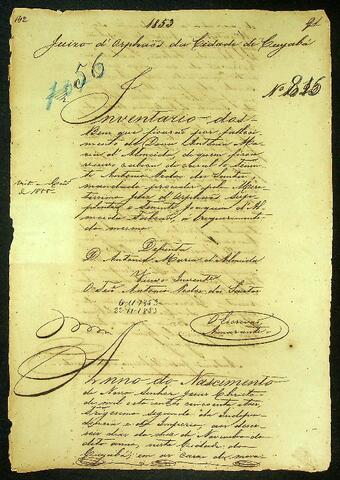 1853
Juizo d'Orphaõs da Cidade de Cuyabá
56
Nº 815
Inventario dos
Bens que ficaraõ por falleci-
mento de Dona Antonia Ma-
ria d'Almeida, de quem ficou
viuvo e cabeça de casal o Tenen-
te Antonio Pedro dos Santos
mandado proceder pelo
terino Juiz d'Orphaõs Sup-
plente o Tenente Joaquim d'Al-
meida Falcaõ, a requerimento
do mesmo
Defunta
D. Antonia Maria d'Almeida
Viuvo Invente
O Tene Antonio Pedro dos Santos
6-11-1853
22-11-1853
O Escrivaõ
Amarante
Anno do Nascimento
de Nosso Senhor Jesus Christo
de mil oito centos cincoenta e tres,
trigesimo segundo da Indepen-
dencia e do Imperio, aos
seis dias do mez de Novembro do
dito anno, nesta Cidade do
Cuyabá, em as casas de mora